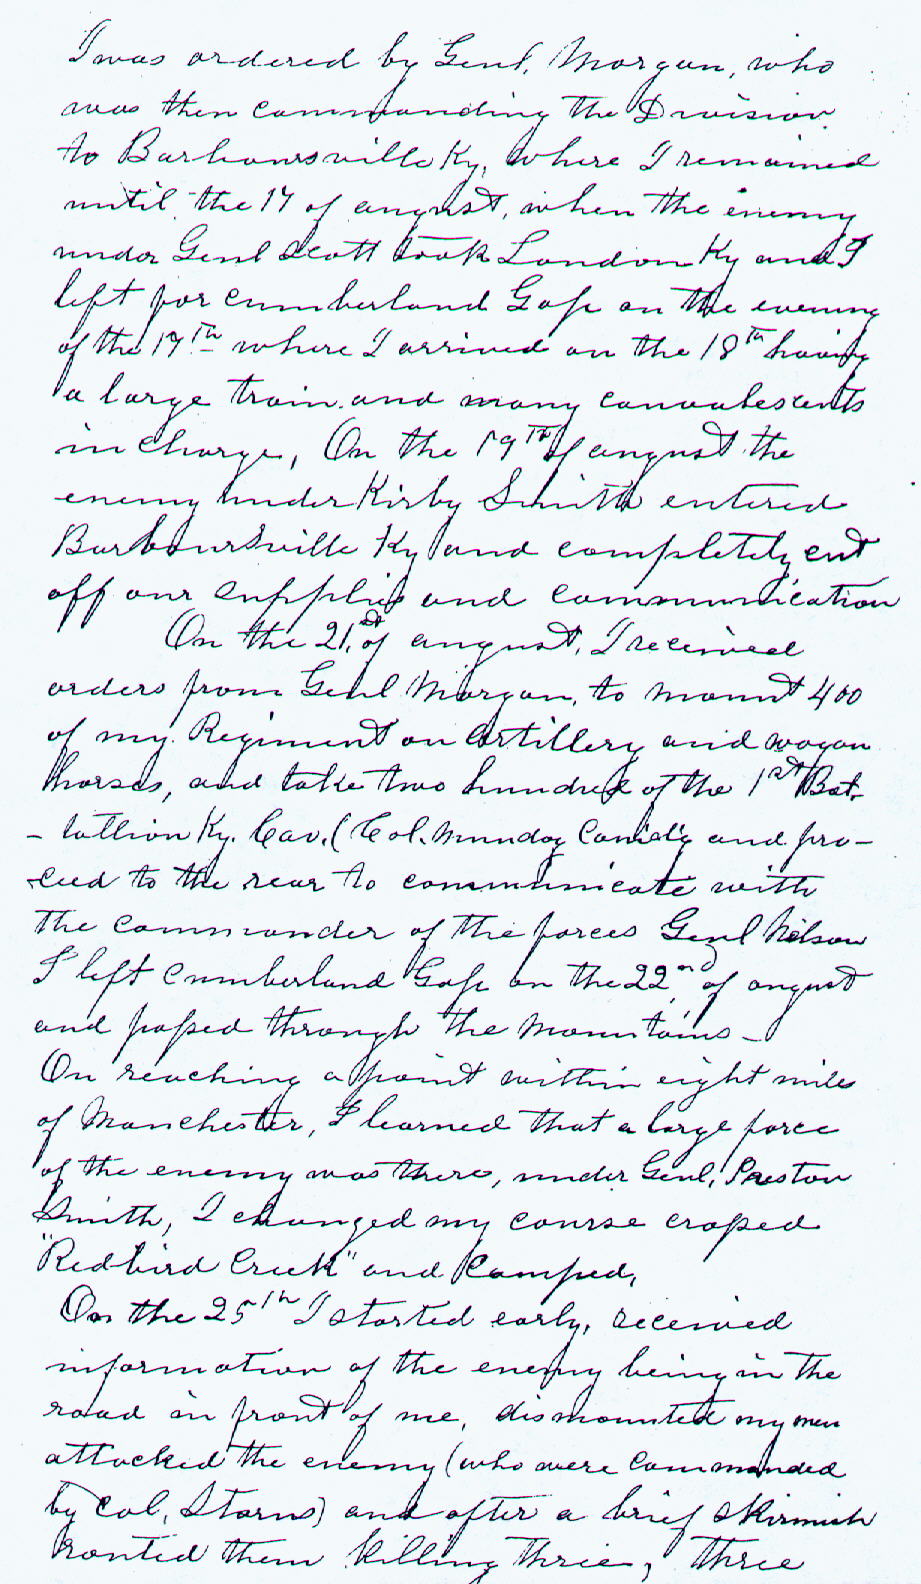 I was ordered by Genl. Morgan, who
was then commanding the Division
to Barboursville Ky, where I remained
until the 17 of august, when the enemy
under Genl Scott took London Ky and I
left for Cumberland Gap on the evening
of the 17th where I arrived on the 18th having
a large train and many convalescents
in charge, On the 19th of august the
enemy under Kirby Smith entered
Barboursville Ky and completely cut
off our supplies and communication
On the 21st of august, I received
orders from Genl Morgan, to mount 400
of my Regiment on Artillery and wagon
horses, and take two hundred of the 1st Bat-
-tallion Ky. Cav. (Col. Munday Comdg and pro-
-ceed to the rear to communicate with
the commander of the forces Genl Nelson
I left Cumberland Gap on the 22nd of august
and passed through the Mountains -
On reaching a point within eight miles
of Manchester, I learned that a large force
of the enemy was there, under Genl, Preston
Smith, I changed my course crossed
"Redbird Creek" and Camped,
On the 25th I started early, received
information of the enemy being in the
road in front of me, dismounted my men
attacked the enemy (who were Commanded
by Col, Starns) and after a brief skirmish
routed them killing three, three